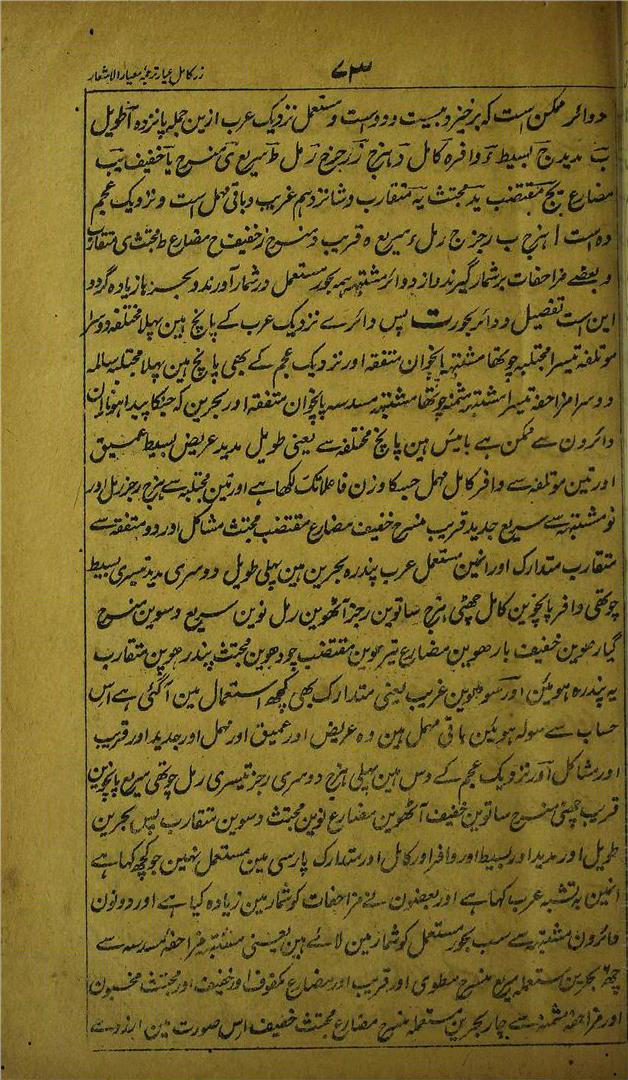 زر کامل عیار ترجمہ معیار الاشعار
۷۳
دوائر ممکن است کہ برخیزد بیست و دو است و مستعمل نزدیک عرب ازین جملہ پانزدہ آ طویل
ب مدید ج بسیط ء وافر ہ کامل و ہزج ز رجز ح رمل ط سریع ی منسرح یا خفیف یب
مضارع یج مقتضب ید مجتث یہ متقارب و شانزدہم غریب و باقی مہمل است و نزدیک عجم
دہ است ا ہزج ب رجز ج رمل ء سریع ہ قریب و منسرح ز خفیف ح مضارع ط مجتث ی متقارب
و بعضے مزاحفات برشمار گیرند و از دوائر مشتبہہ ہمہ بحور مستعمل در شمار آورند و بحرہا زیادہ گردد
این است تفصیل دوائر بحور ت پس دائرے نزدیک عرب کے پانچ ہین پہلا مختلفہ دوسرا
موتلفہ تیسرا مجتلبہ چوتھا مشتبہہ پانچوان متفقہ اور نزدیک عجم کے بھی پانچ ہین پہلا مجتلبہ سالمہ
دوسرا مزاحفہ تیسرا مشتبہہ مثمنہ چوتھا مشتبہہ مسدسہ پانچوان متفقہ اور بحرین کہ جنکا پیدا ہونا ان
دائرون سے ممکن ہے بائیس ہین پانچ مختلفہ سے یعنی طویل مدید عریض بسیط عمیق
اور تین موتلفہ سے وافر کامل مہمل جسکا وزن فاعلاتک لکھا ہے اور تین مجتلبہ سے ہزج رجز رمل اور
نو مشتبہہ سے سریع جدید قریب منسرح خفیف مضارع مقتضب مجتث مشاکل اور دو متفقہ سے
متقارب متدارک اور انمین مستعمل عرب پندرہ بحرین ہین پہلی طویل دوسری مدید تیسری بسیط
چوتھی وافر پانچوین کامل چھٹی ہزج ساتوین رجز آٹھوین رمل نوین سریع دسوین منسرح
گیارھوین خفیف بارھوین مضارع تیرھوین مقتضب چودھوین مجتث پندرھوین متقارب
یہ پندرہ ہوئین اور سولھوین غریب یعنی متدارک بھی کچھ استعمال مین آگئی ہے اس
حساب سے سولہ ہوئین باقی مہمل ہین وہ عریض اور عمیق اور مہمل اور جدید اور قریب
اور مشاکل اور نزدیک عجم کے دس ہین پہلی ہزج دوسری رجز تیسری رمل چوتھی سریع پانچوین
قریب چھٹی منسرح ساتوین خفیف آٹھوین مضارع نوین مجتث دسوین متقارب پس بحرین
طویل اور مدید اور بسیط اور وافر اور کامل اور متدارک پارسی مین مستعمل نہین جو کچھ کہا ہے
انمین بہ تشبہ عرب کہا ہے اور بعضون نے مزاحفات کو شمار مین زیادہ کیا ہے اور دونون
دائرون مشتبہہ سے سب بحور مستعمل کو شمار مین لائے ہین یعنی مشتبہہ مزاحفہ مسدسہ سے
چھ بحرین مستعملہ سریع منسرح مطوی اور قریب اور مضارع مکفوف اور خفیف اور مجتث مخبون
اور مزاحفہ مثمنہ سے چار بحرین مستعملہ منسرح مضارع مجتث خفیف اس صورت مین ازروے